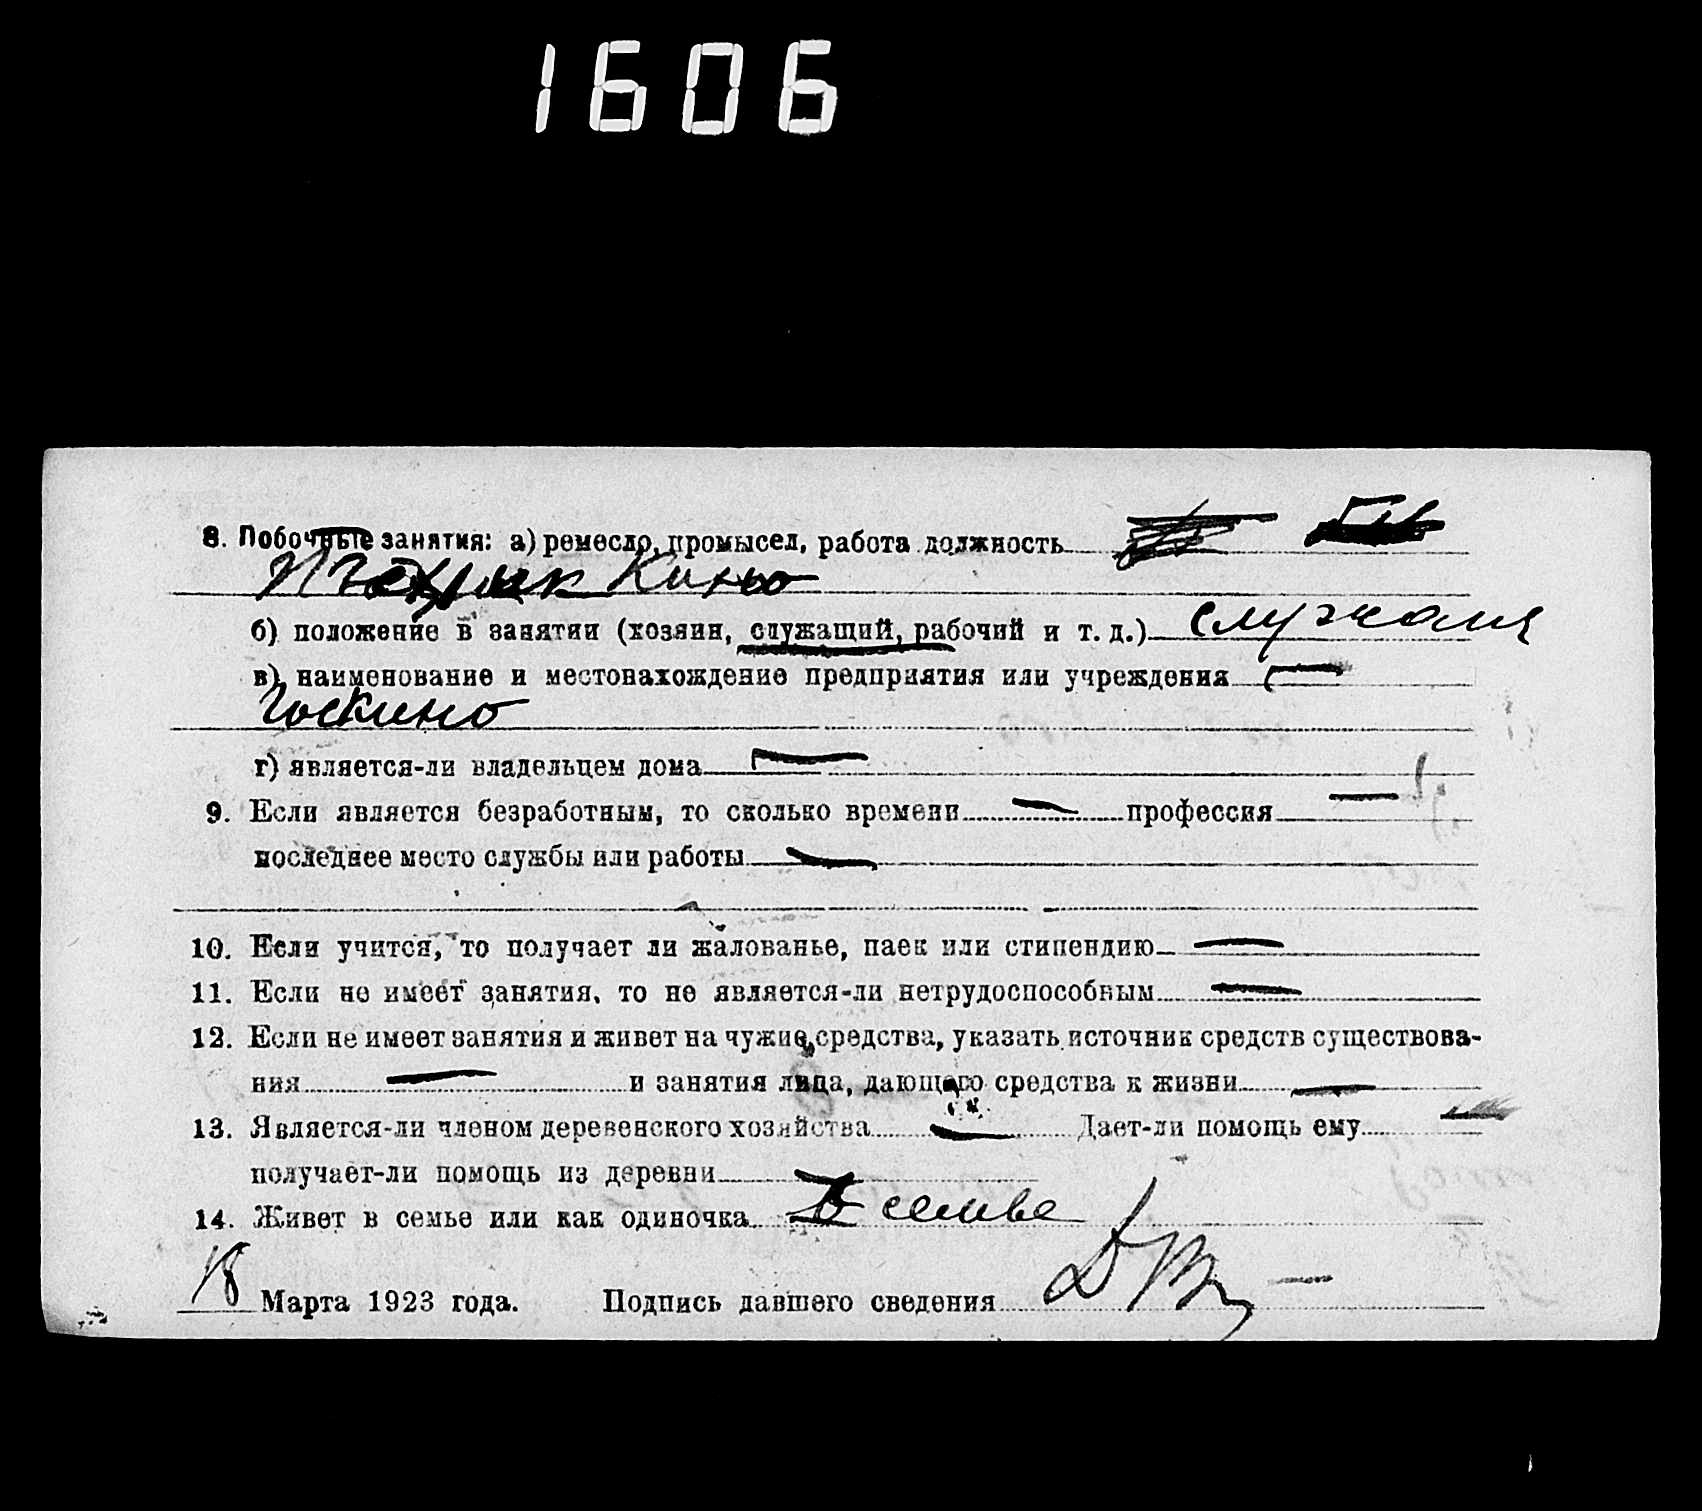 1606
8. Побочные занятия: а) ремесло, промысел, работа должность
Кино
б) положение в занятии (хозяин, служащий, рабочий и т. д.)
в) наименование и местонахождение предприятия или учреждения —
Госкино
г) является-ли владельцем дома —
9. Если является безработным, то сколько времени — профессия —
последнее место службы или работы —
10. Если учится, то получает ли жалованье, паек или стипендию —
11. Если не имеет занятия, то не является-ли нетрудоспособным —
12. Если не имеет занятия и живет на чужие средства, указать источник средств существова-
ния — и занятия лица, дающего средства к жизни —
13. Является-ли членом деревенского хозяйства — Дает-ли помощь ему —
получает-ли помощь из деревни —
14. Живет в семье или как одиночка В семье
18 Марта 1923 года. Подпись давшего сведения